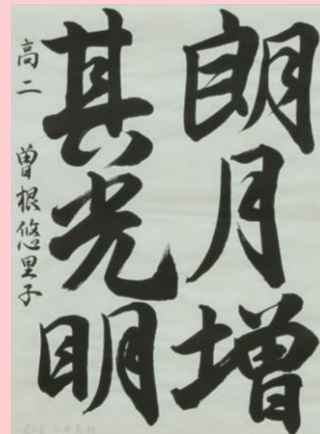 朗月増
其光明
高二 曽根悠里子